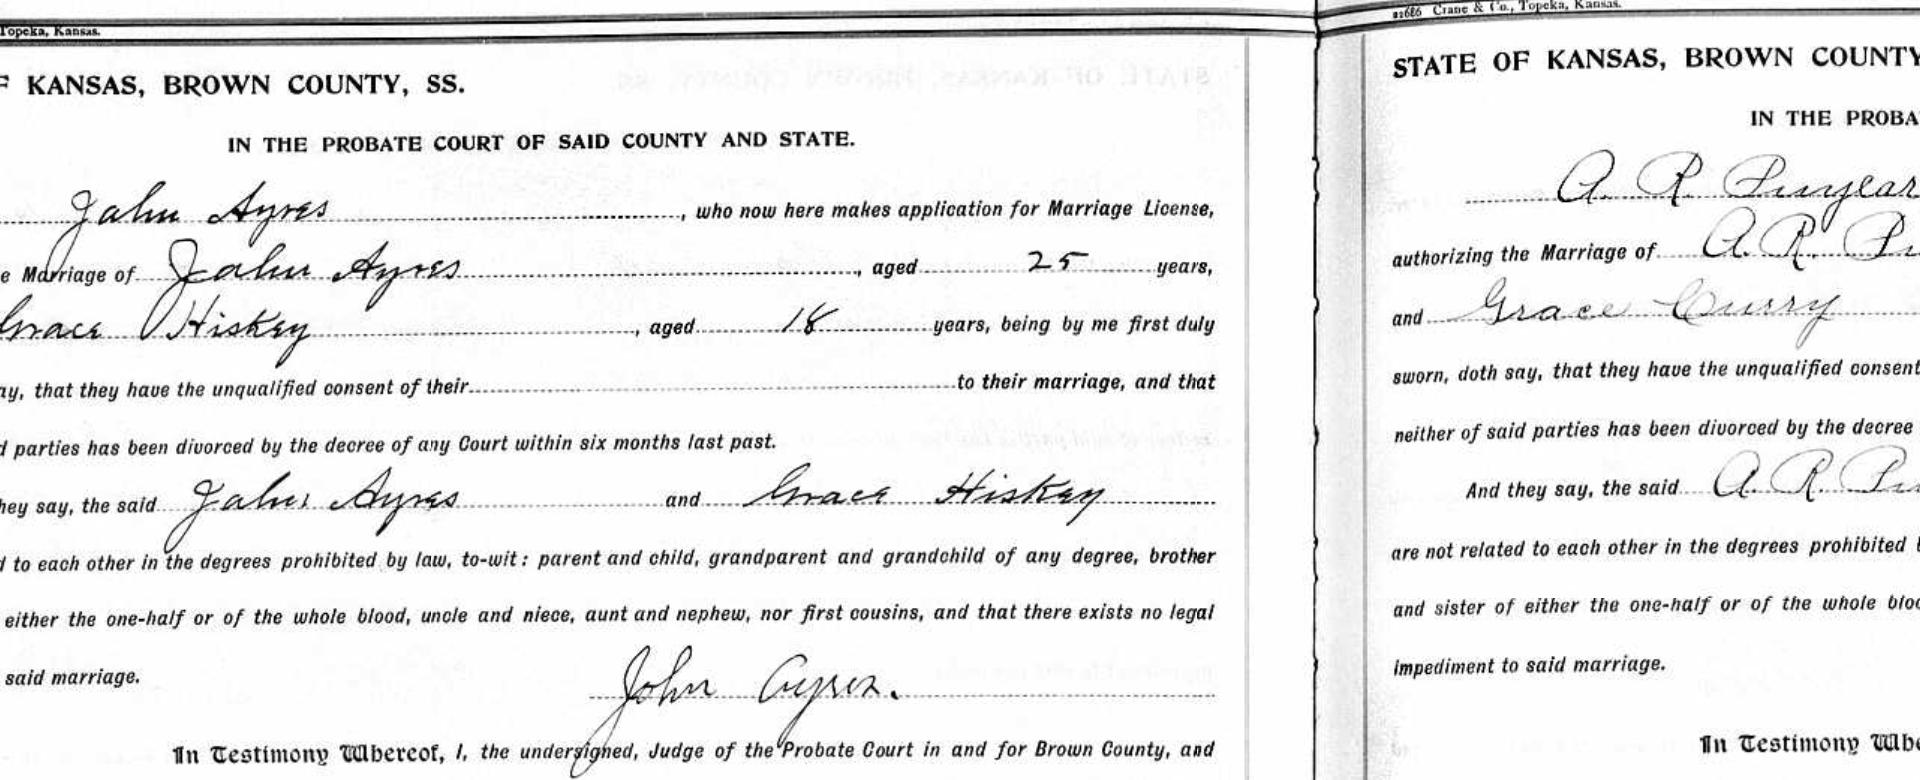 Topeka, Kansas.
F KANSAS, BROWN COUNTY, SS.
IN THE PROBATE COURT OF SAID COUNTY AND STATE.
John Ayres, who now here makes application for Marriage License,
e Marriage of John Ayres, aged 25 years,
Grace Hiskey, aged 18 years, being by me first duly
ay, that they have the unqualified consent of their to their marriage, and that
d parties has been divorced by the decree of any Court within six months last past.
hey say, the said John Ayres and Grace Hiskey
d to each other in the degrees prohibited by law, to-wit: parent and child, grandparent and grandchild of any degree, brother
either the one-half or of the whole blood, uncle and niece, aunt and nephew, nor first cousins, and that there exists no legal
said marriage.
John Ayres.
In Testimony Whereof, I, the undersigned, Judge of the Probate Court in and for Brown County, and
22686 Crane & Co., Topeka, Kansas.
STATE OF KANSAS, BROWN COUNTY
IN THE PROBA
A. R. Puryear
authorizing the Marriage of A. R. Pu
and Grace Curry
sworn, doth say, that they have the unqualified consent
neither of said parties has been divorced by the decree
And they say, the said A. R. Pu
are not related to each other in the degrees prohibited b
and sister of either the one-half or of the whole bloo
impediment to said marriage.
In Testimony Whe